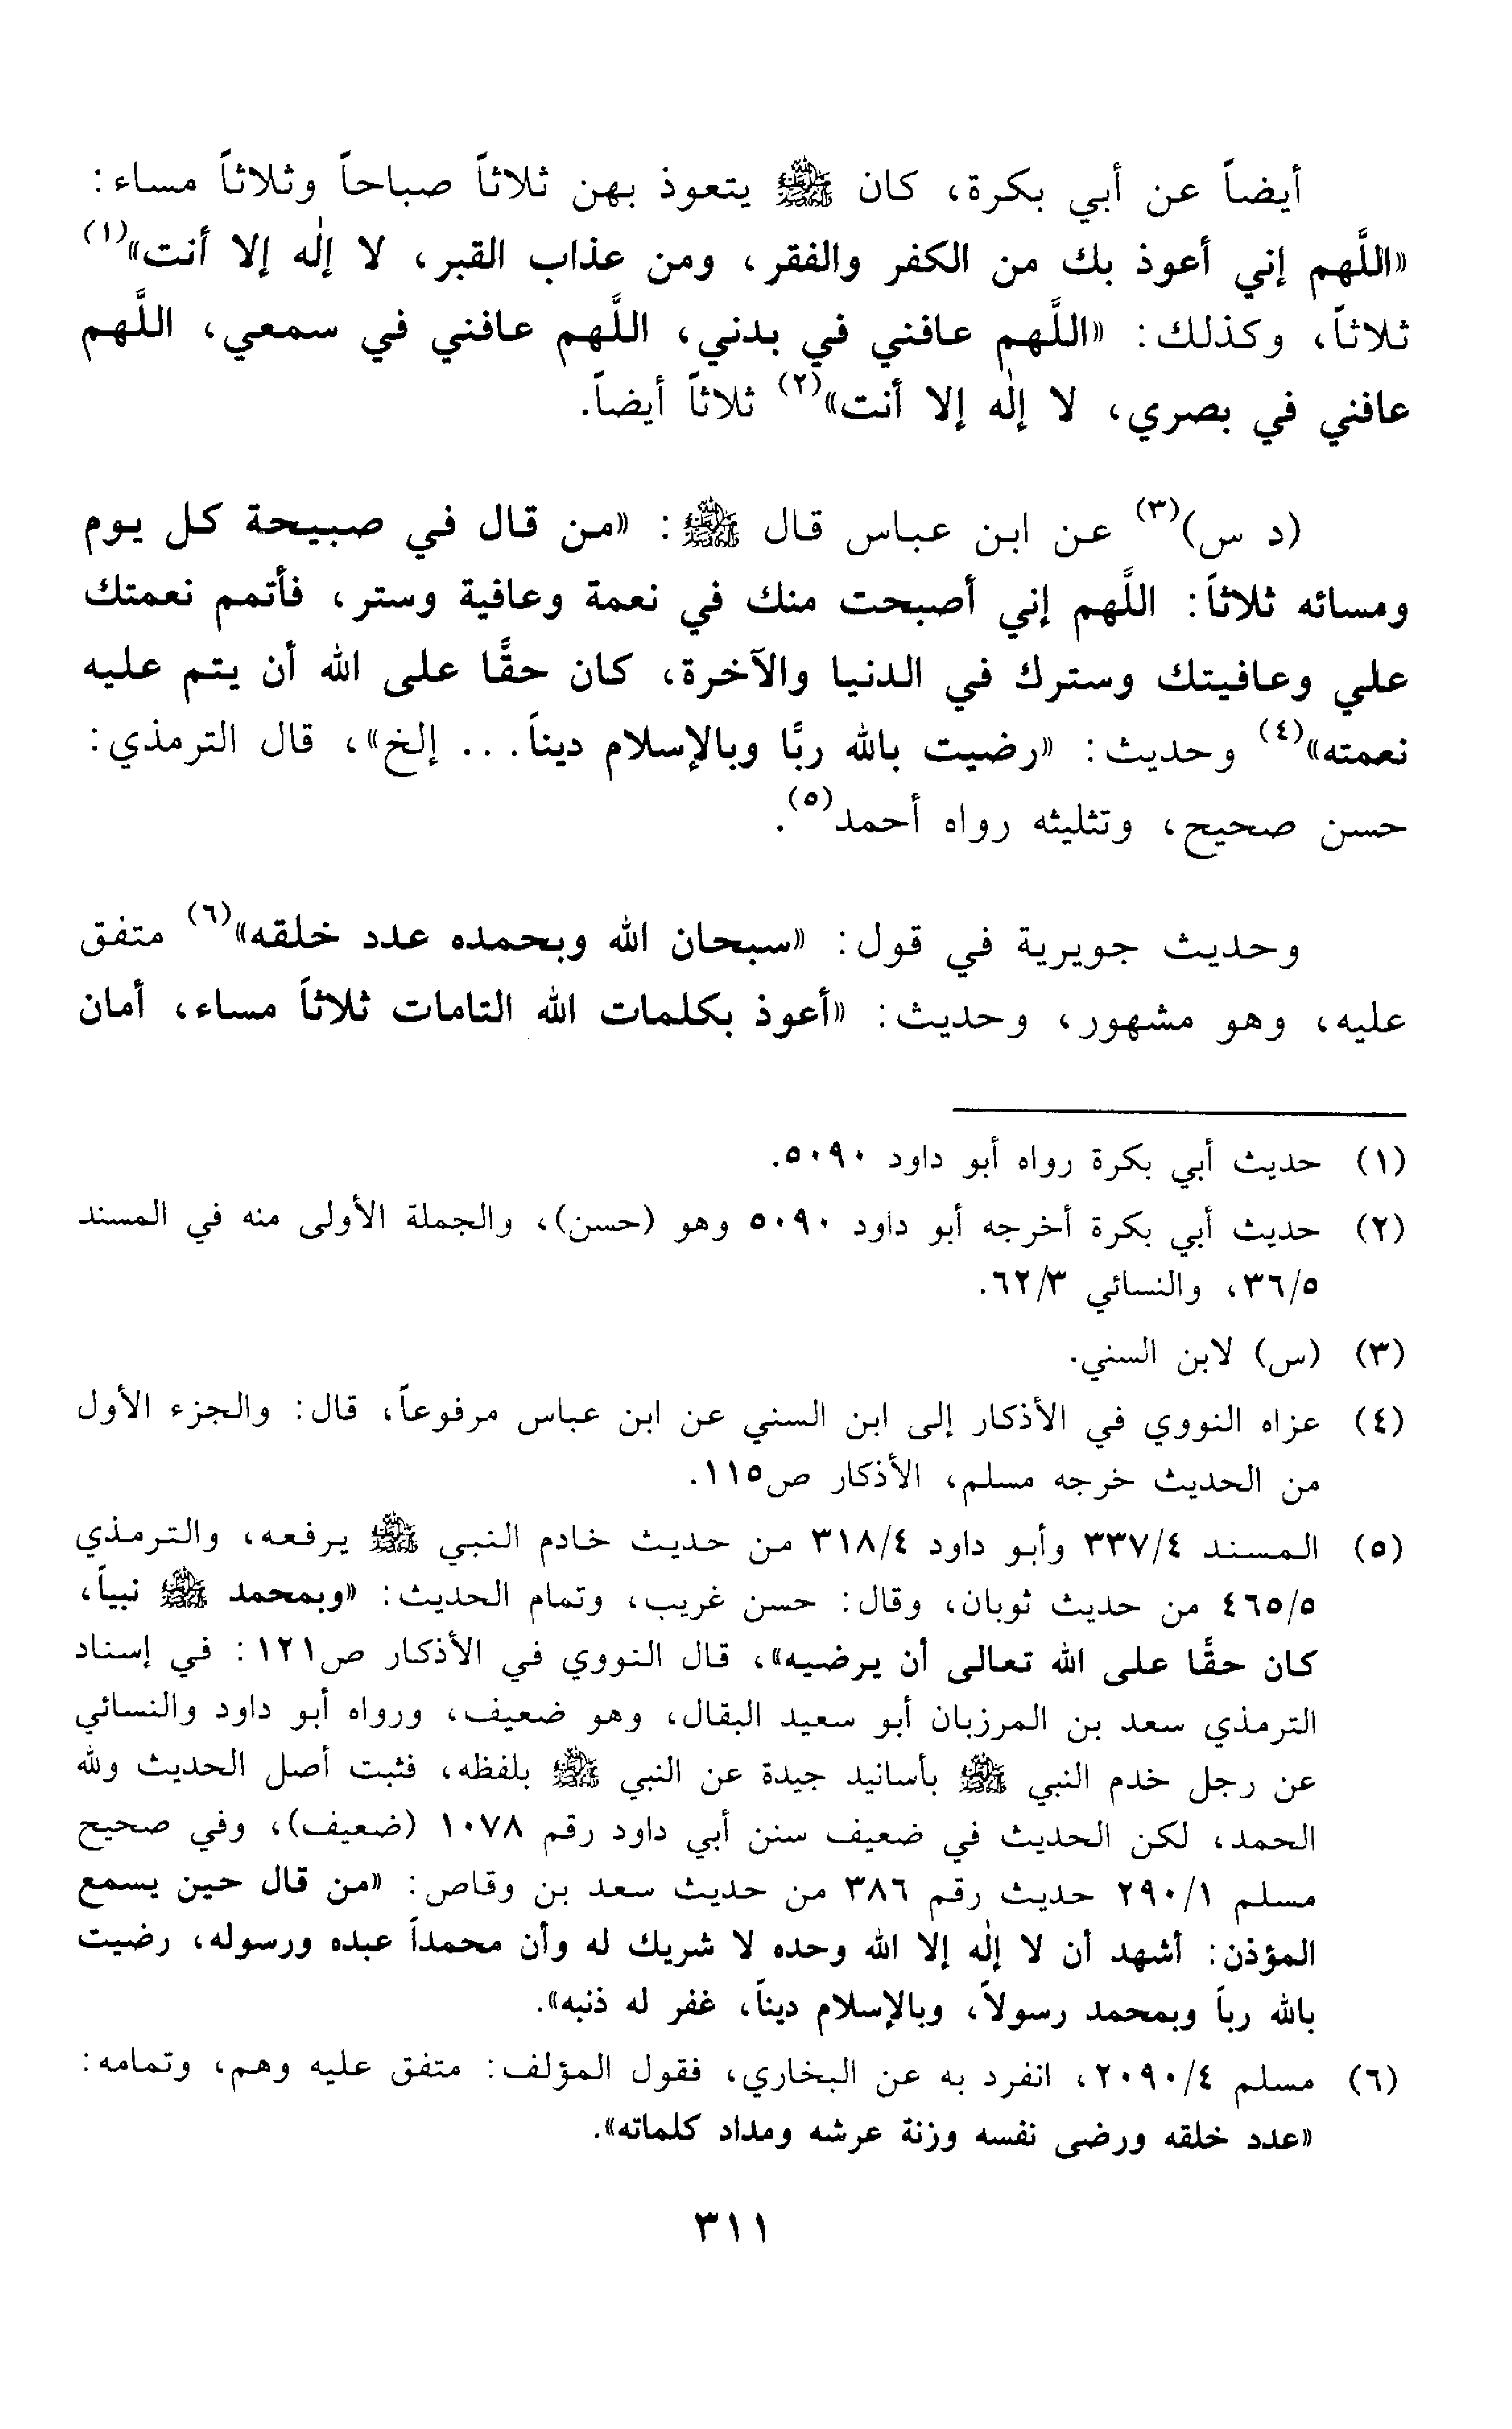 أيضاً عن أبي بكرة، كان ﷺ يتعوذ بهن ثلاثاً صباحاً وثلاثاً مساء:
«اللَّهم إني أعوذ بك من الكفر والفقر، ومن عذاب القبر، لا إلٰه إلا أنت»(١)
ثلاثاً، وكذلك: «اللَّهم عافني في بدني، اللَّهم عافني في سمعي، اللَّهم
عافني في بصري، لا إلٰه إلا أنت»(٢) ثلاثاً أيضاً.
(د س)(٣) عن ابن عباس قال ﷺ: «من قال في صبيحة كل يوم
ومسائه ثلاثاً: اللَّهم إني أصبحت منك في نعمة وعافية وستر، فأتمم نعمتك
علي وعافيتك وسترك في الدنيا والآخرة، كان حقًّا على الله أن يتم عليه
نعمته»(٤) وحديث: «رضيت بالله ربًّا وبالإسلام ديناً... إلخ»، قال الترمذي:
حسن صحيح، وتثليثه رواه أحمد(٥).
وحديث جويرية في قول: «سبحان الله وبحمده عدد خلقه»(٦) متفق
عليه، وهو مشهور، وحديث: «أعوذ بكلمات الله التامات ثلاثاً مساء، أمان
(١) حديث أبي بكرة رواه أبو داود ٥٠٩٠.
(٢) حديث أبي بكرة أخرجه أبو داود ٥٠٩٠ وهو (حسن)، والجملة الأولى منه في المسند
٣٦/٥، والنسائي ٦٢/٣.
(٣) (س) لابن السني.
(٤) عزاه النووي في الأذكار إلى ابن السني عن ابن عباس مرفوعاً، قال: والجزء الأول
من الحديث خرجه مسلم، الأذكار ص١١٥.
(٥) المسند ٣٣٧/٤ وأبو داود ٣١٨/٤ من حديث خادم النبي ﷺ يرفعه، والترمذي
٤٦٥/٥ من حديث ثوبان، وقال: حسن غريب، وتمام الحديث: «وبمحمد ﷺ نبياً،
كان حقًّا على الله تعالى أن يرضيه»، قال النووي في الأذكار ص١٢١: في إسناد
الترمذي سعد بن المرزبان أبو سعيد البقال، وهو ضعيف، ورواه أبو داود والنسائي
عن رجل خدم النبي ﷺ بأسانيد جيدة عن النبي ﷺ بلفظه، فثبت أصل الحديث ولله
الحمد، لكن الحديث في ضعيف سنن أبي داود رقم ١٠٧٨ (ضعيف)، وفي صحيح
مسلم ٢٩٠/١ حديث رقم ٣٨٦ من حديث سعد بن وقاص: «من قال حين يسمع
المؤذن: أشهد أن لا إلٰه إلا الله وحده لا شريك له وأن محمداً عبده ورسوله، رضيت
بالله رباً وبمحمد رسولاً، وبالإسلام ديناً، غفر له ذنبه».
(٦) مسلم ٢٠٩٠/٤، انفرد به عن البخاري، فقول المؤلف: متفق عليه وهم، وتمامه:
«عدد خلقه ورضى نفسه وزنة عرشه ومداد كلماته».
٣١١